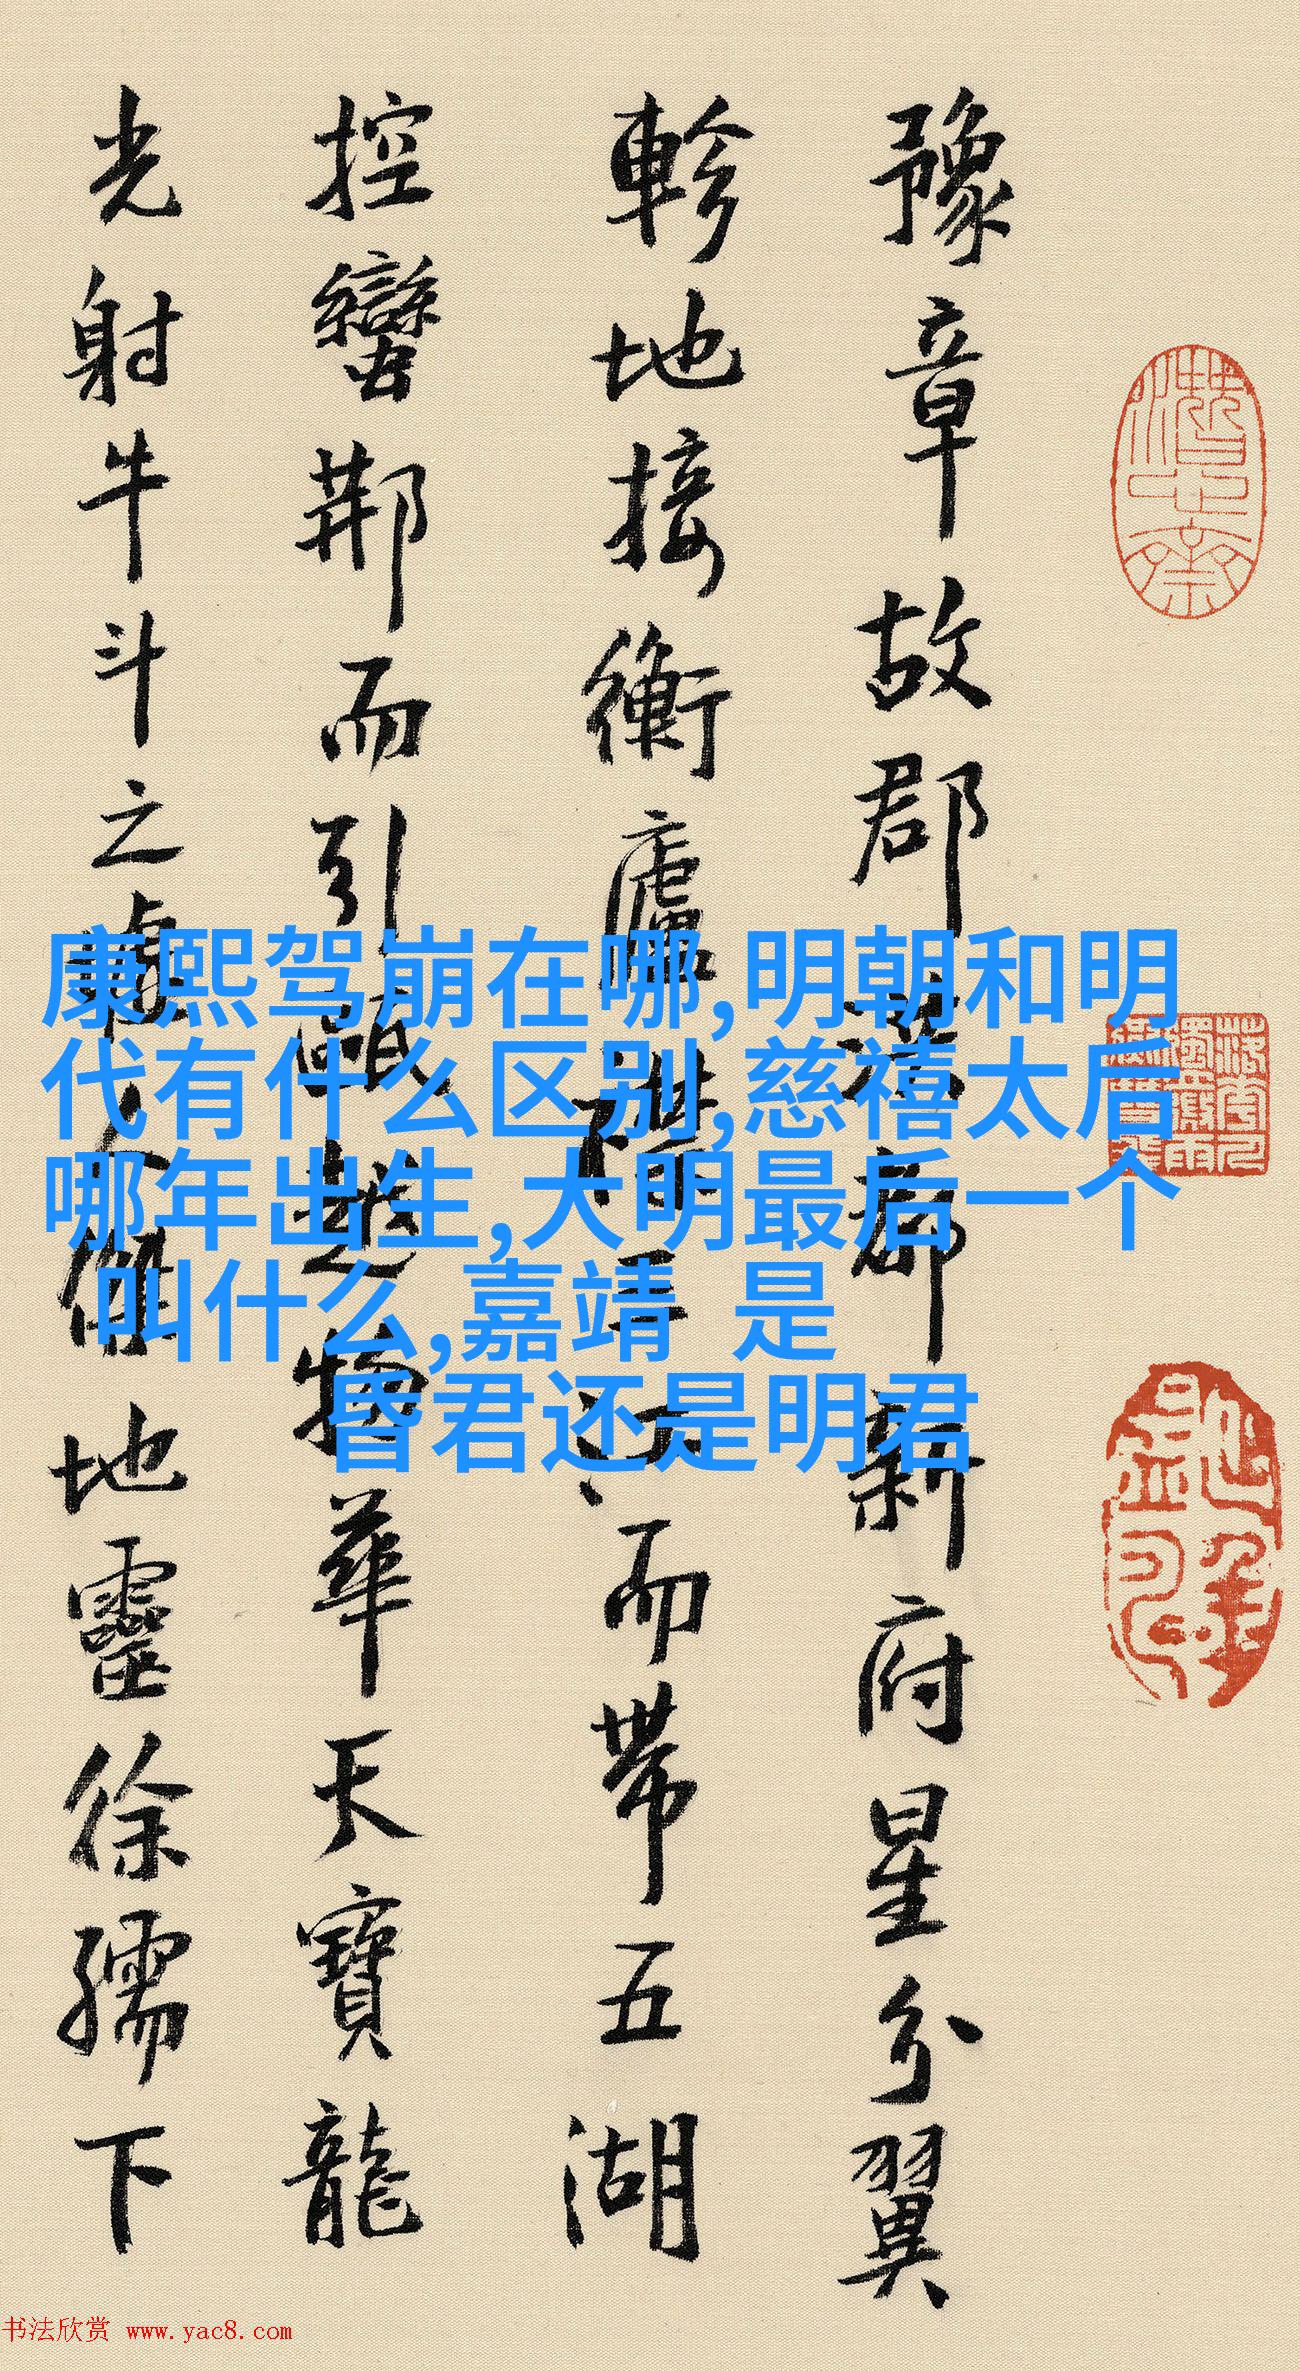 豫章故郡洪都新府星分翼
軫地接衡廬襟三江而帶五湖
控蠻荊而引甌越物華天寶龍
光射牛斗之墟人傑地靈徐孺下
康熙驾崩在哪,明朝和明
代有什么区别,慈禧太后
哪年出生,大明最后一个
叫什么,嘉靖 是
昏君还是明君
书法欣赏 www.yac8.com